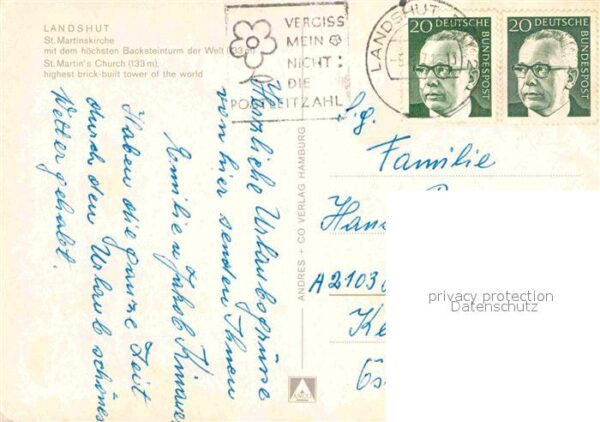 LANDSHUT
St. Martinskirche
mit dem höchsten Backsteinturm der Welt (133 m)
St. Martin's Church (133 m),
highest brick-built tower of the world
VERGISS
MEIN
NICHT:
DIE
POSTLEITZAHL
LANDSHUT
20 DEUTSCHE BUNDESPOST
20 DEUTSCHE BUNDESPOST
Herzliche Urlaubsgrüsse
von hier senden Ihnen
Emilie u. Jakob
Haben die ganze Zeit
durch den Urlaub schönes
Wetter gehabt.
ANDRES + CO VERLAG HAMBURG
ANCO
S.g.
Familie
Hans
A 2103
privacy protection
Datenschutz